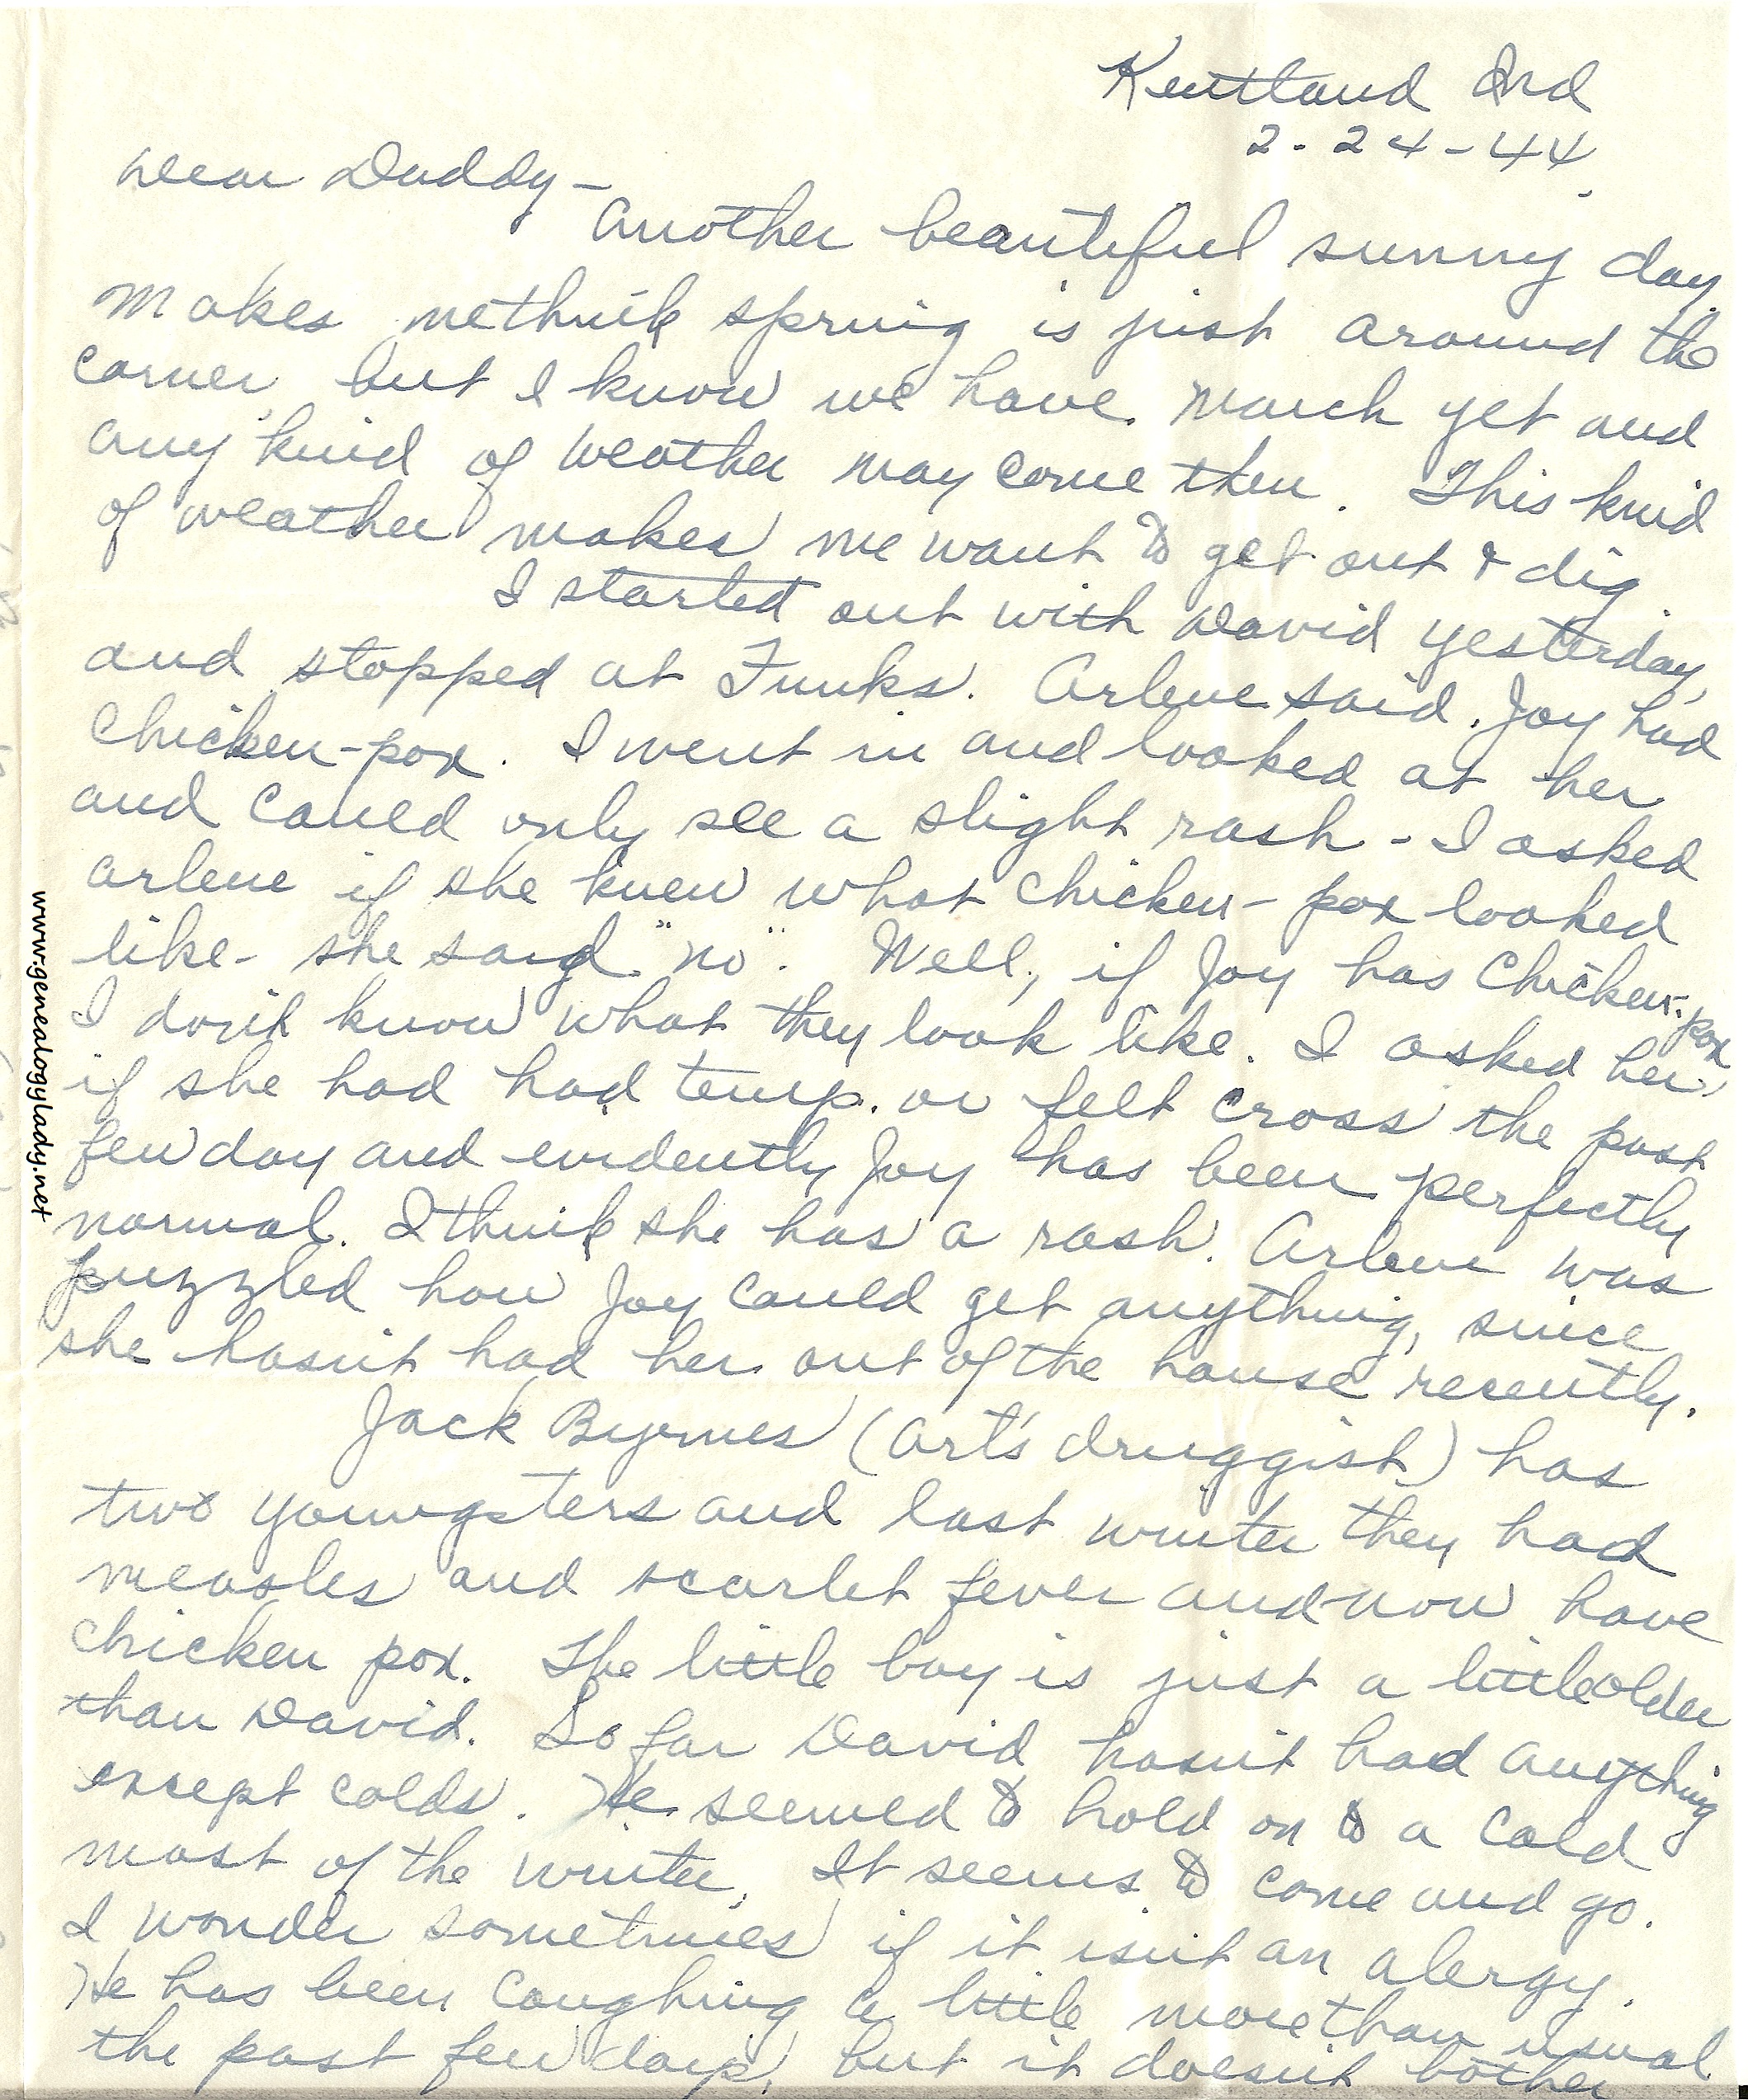 Kentland Ind
2-24-44.
Dear Daddy-
Another beautiful sunny day.
Makes methink spring is just around the
corner, but I know we have March yet and
any kind of weather may come then. This kind
of weather makes me want to get out & dig.
I started out with David yesterday,
and stopped at Funks. Arlene said Joy had
chicken-pox. I went in and looked at her
and could only see a slight rash - I asked
Arlene if she knew what chicken-pox looked
like- she said "no". Well, if Joy has chicken-pox
I don't know what they look like. I asked her,
if she had had temp. or felt cross the past
few day and evidently Joy has been perfectly
normal. I think she has a rash. Arlene was
puzzled how Joy could get anything, since
she hasn't had her out of the house recently.
Jack Byrnes (Art's druggist) has
two youngsters and last winter they had
measles and scarlet fever and now have
chicken pox. The little boy is just a little older
than David. So far David hasn't had anything
except colds. He seemed to hold on to a cold
most of the winter. It seems to come and go.
I wonder sometimes if it isn't an alergy.
He has been coughing a little more than usual
the past few days, but it doesn't bother
www.genealogylady.net